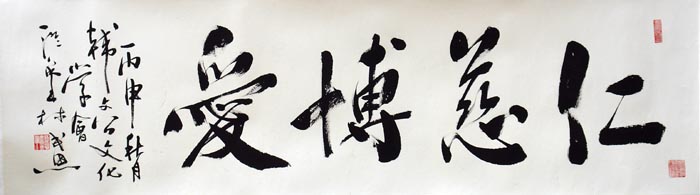 仁慈博愛
丙申秋月
韓文公文化
學會